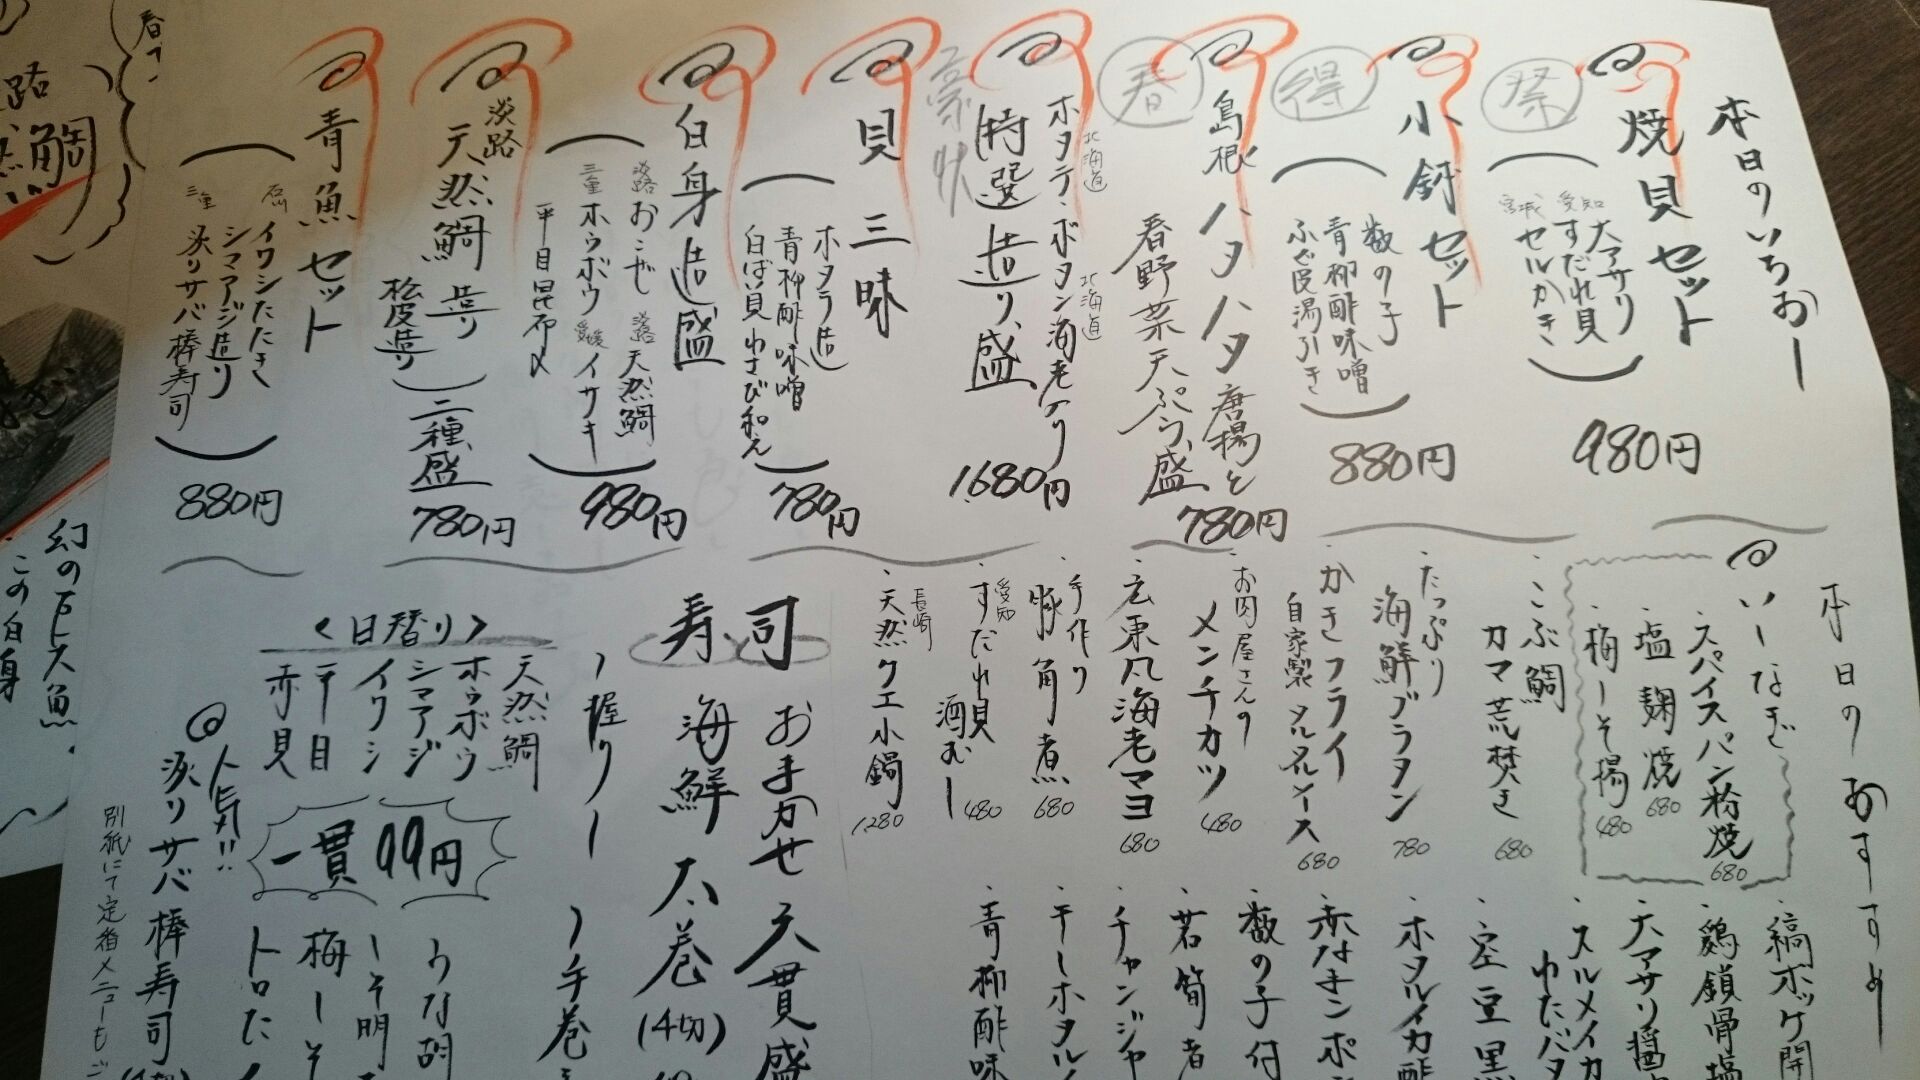 本日のいちおー
焼貝セット
愛知
大アサリ
すだれ貝
宮城
セルがき
980円
祭
小鉢セット
数の子
青柳酢味噌
ふぐ皮湯引き
880円
得
島根
ハタハタ唐揚と
春野菜天ぷら盛
780円
春
北海道
ホタテ・ボタン海老入り
北海道
特選造り盛
1,680円
貝三味
ホタテ造
青柳酢味噌
白ばい貝わさび和え
780円
白身造盛
淡路
おこぜ
淡路
天然鯛
三重
ホウボウ
愛媛
イサキ
平目昆布〆
980円
淡路
天然鯛造り
松皮造
二種盛
780円
青魚セット
石川
イワシたたき
シマアジ造り
三重
炙りサバ棒寿司
880円
本日のおすすめ
いーなぎ
・スパイスパン粉焼
680
・塩麹焼
680
・梅しそ揚
480
・こぶ鯛
カマ荒焚き
680
・たっぷり
海鮮グラタン
780
・かきフライ
自家製タルタルソース
680
・お肉屋さんの
メンチカツ
480
・広東風海老マヨ
680
・手作り
豚角煮
680
愛知
・すだれ貝
酒むし
480
長崎
・天然クエ小鍋
1280
・縞ホッケ開
・鶏鎖骨塩
・大アサリ醤
・スルメイカ
わたバタ
・空豆黒
・ホタルイカ酢
・赤なまこポ
・数の子付
・若筍煮
・チャンジャ
・干しホタル
・青柳酢味
寿司
おまかせ八貫盛
海鮮太巻(4切)
握り
手巻き
<日替り>
天然鯛
ホウボウ
シマアジ
イワシ
平目
赤貝
一貫99円
人気!!
炙りサバ棒寿司
別紙にて定番メニューもご
春
路
鯛
幻の下ス魚
この白身